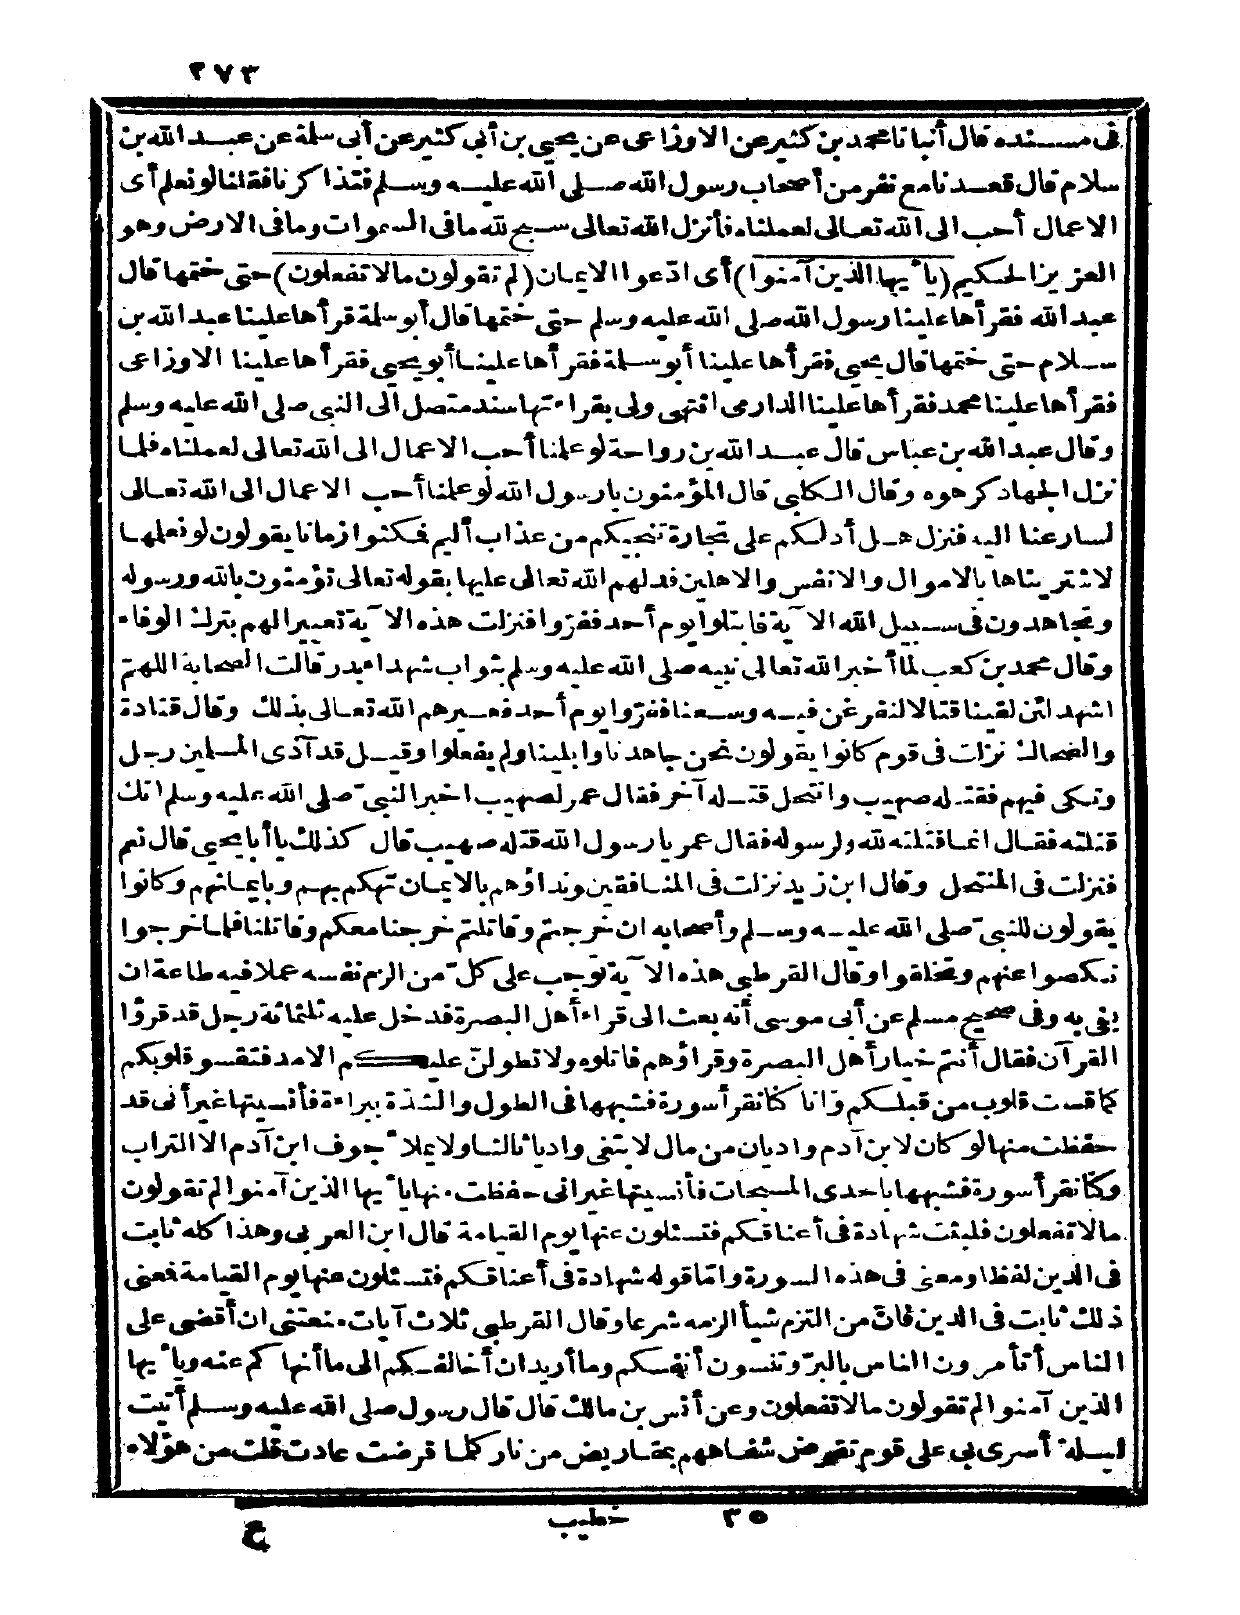 ٢٧٣
فى مسنده قال أنبأنا محمد بن كثير عن الاوزاعى عن يحيى بن أبى كثير عن أبى سلمة عن عبد الله بن
سلام قال قعدنا مع نفر من أصحاب رسول الله صلى الله عليه وسلم فتذاكرنا فقلنا لو نعلم أى
الاعمال أحب الى الله تعالى لعملناه فأنزل الله تعالى سبح لله مافى السموات ومافى الارض وهو
العزيز الحكيم (يا أيها الذين آمنوا) أى ادّعوا الايمان (لم تقولون مالا تفعلون) حتى ختمها قال
عبد الله فقرأها علينا رسول الله صلى الله عليه وسلم حتى ختمها قال أبو سلمة قرأها علينا عبد الله بن
سلام حتى ختمها قال يحيى فقرأها علينا أبو سلمة فقرأها علينا أبو يحيى فقرأها علينا الاوزاعى
فقرأها علينا محمد فقرأها علينا الدارمى انتهى ولى بقراءتها سند متصل الى النبى صلى الله عليه وسلم
وقال عبد الله بن عباس قال عبد الله بن رواحة لو علمنا أحب الاعمال الى الله تعالى لعملناه فلما
نزل الجهاد كرهوه وقال الكلبى قال المؤمنون يا رسول الله لو علمنا أحب الاعمال الى الله تعالى
لسارعنا اليه فنزل هل أدلكم على تجارة تنجيكم من عذاب أليم فمكثوا زمانا يقولون لو نعلمها
لاشتريناها بالاموال والانفس والاهلين فدلهم الله تعالى عليها بقوله تعالى تؤمنون بالله ورسوله
وتجاهدون فى سبيل الله الآية فابتلوا يوم أحد ففرّوا فنزلت هذه الآية تعييرا لهم بترك الوفاء
وقال محمد بن كعب لما أخبر الله تعالى نبيه صلى الله عليه وسلم بثواب شهداء بدر قالت الصحابة اللهمّ
اشهد لئن لقينا قتالا لنفرغن فيه وسعنا ففرّوا يوم أحد فعيرهم الله تعالى بذلك وقال قتادة
والضحاك نزلت فى قوم كانوا يقولون نحن جاهدنا وابلينا ولم يفعلوا وقيل قد آذى المسلمين رجل
ونكى فيهم فقتله صهيب وانتحل قتله آخر فقال عمر لصهيب اخبر النبىّ صلى الله عليه وسلم انك
قتلته فقال انما قتلته لله ولرسوله فقال عمر يا رسول الله قتله صهيب قال كذلك يا أبا يحيى قال نعم
فنزلت فى المنتحل وقال ابن زيد نزلت فى المنافقين ونداؤهم بالايمان تهكم بهم وبايمانهم وكانوا
يقولون للنبىّ صلى الله عليه وسلم وأصحابه ان خرجتم وقاتلتم خرجنا معكم وقاتلنا فلما خرجوا
نكصوا عنهم وتخلفوا وقال القرطبى هذه الآية توجب على كلّ من الزم نفسه عملا فيه طاعة ان
يفى به وفى صحيح مسلم عن أبى موسى أنه بعث الى قراء أهل البصرة فدخل عليه ثلثمائة رجل قد قرؤا
القرآن فقال أنتم خيار أهل البصرة وقراؤهم فاتلوه ولا تطولنّ عليكم الامد فتقسو قلوبكم
كما قست قلوب من قبلكم وانا كنا نقرأ سورة فشبهها فى الطول والشدّة ببراءة فأنسيتها غير أنى قد
حفظت منها لو كان لابن آدم واديان من مال لابتغى واديا ثالثا ولا يملأ جوف ابن آدم الا التراب
وكنا نقرأ سورة فشبهها باحدى المسبحات فأنسيتها غير انى حفظت منها يا أيها الذين آمنوا لم تقولون
مالا تفعلون فلبثت شهادة فى أعناقكم فتسئلون عنها يوم القيامة قال ابن العربى وهذا كله ثابت
فى الدين لفظا ومعنى فى هذه السورة وامّا قوله شهادة فى أعناقكم فتسئلون عنها يوم القيامة فمعنى
ذلك ثابت فى الدين فانّ من التزم شيأ الزمه شرعا وقال القرطبى ثلاث آيات منعتنى ان أقضى على
الناس أتأمرون الناس بالبرّ وتنسون أنفسكم وما أريد ان أخالفكم الى ما أنهاكم عنه ويا أيها
الذين آمنوا لم تقولون مالا تفعلون وعن أنس بن مالك قال قال رسول صلى الله عليه وسلم أتيت
ليلة أسرى بى على قوم تقرض شفاههم بمقاريض من نار كلما قرضت عادت قلت من هؤلاء
٣٥ خطيب ع